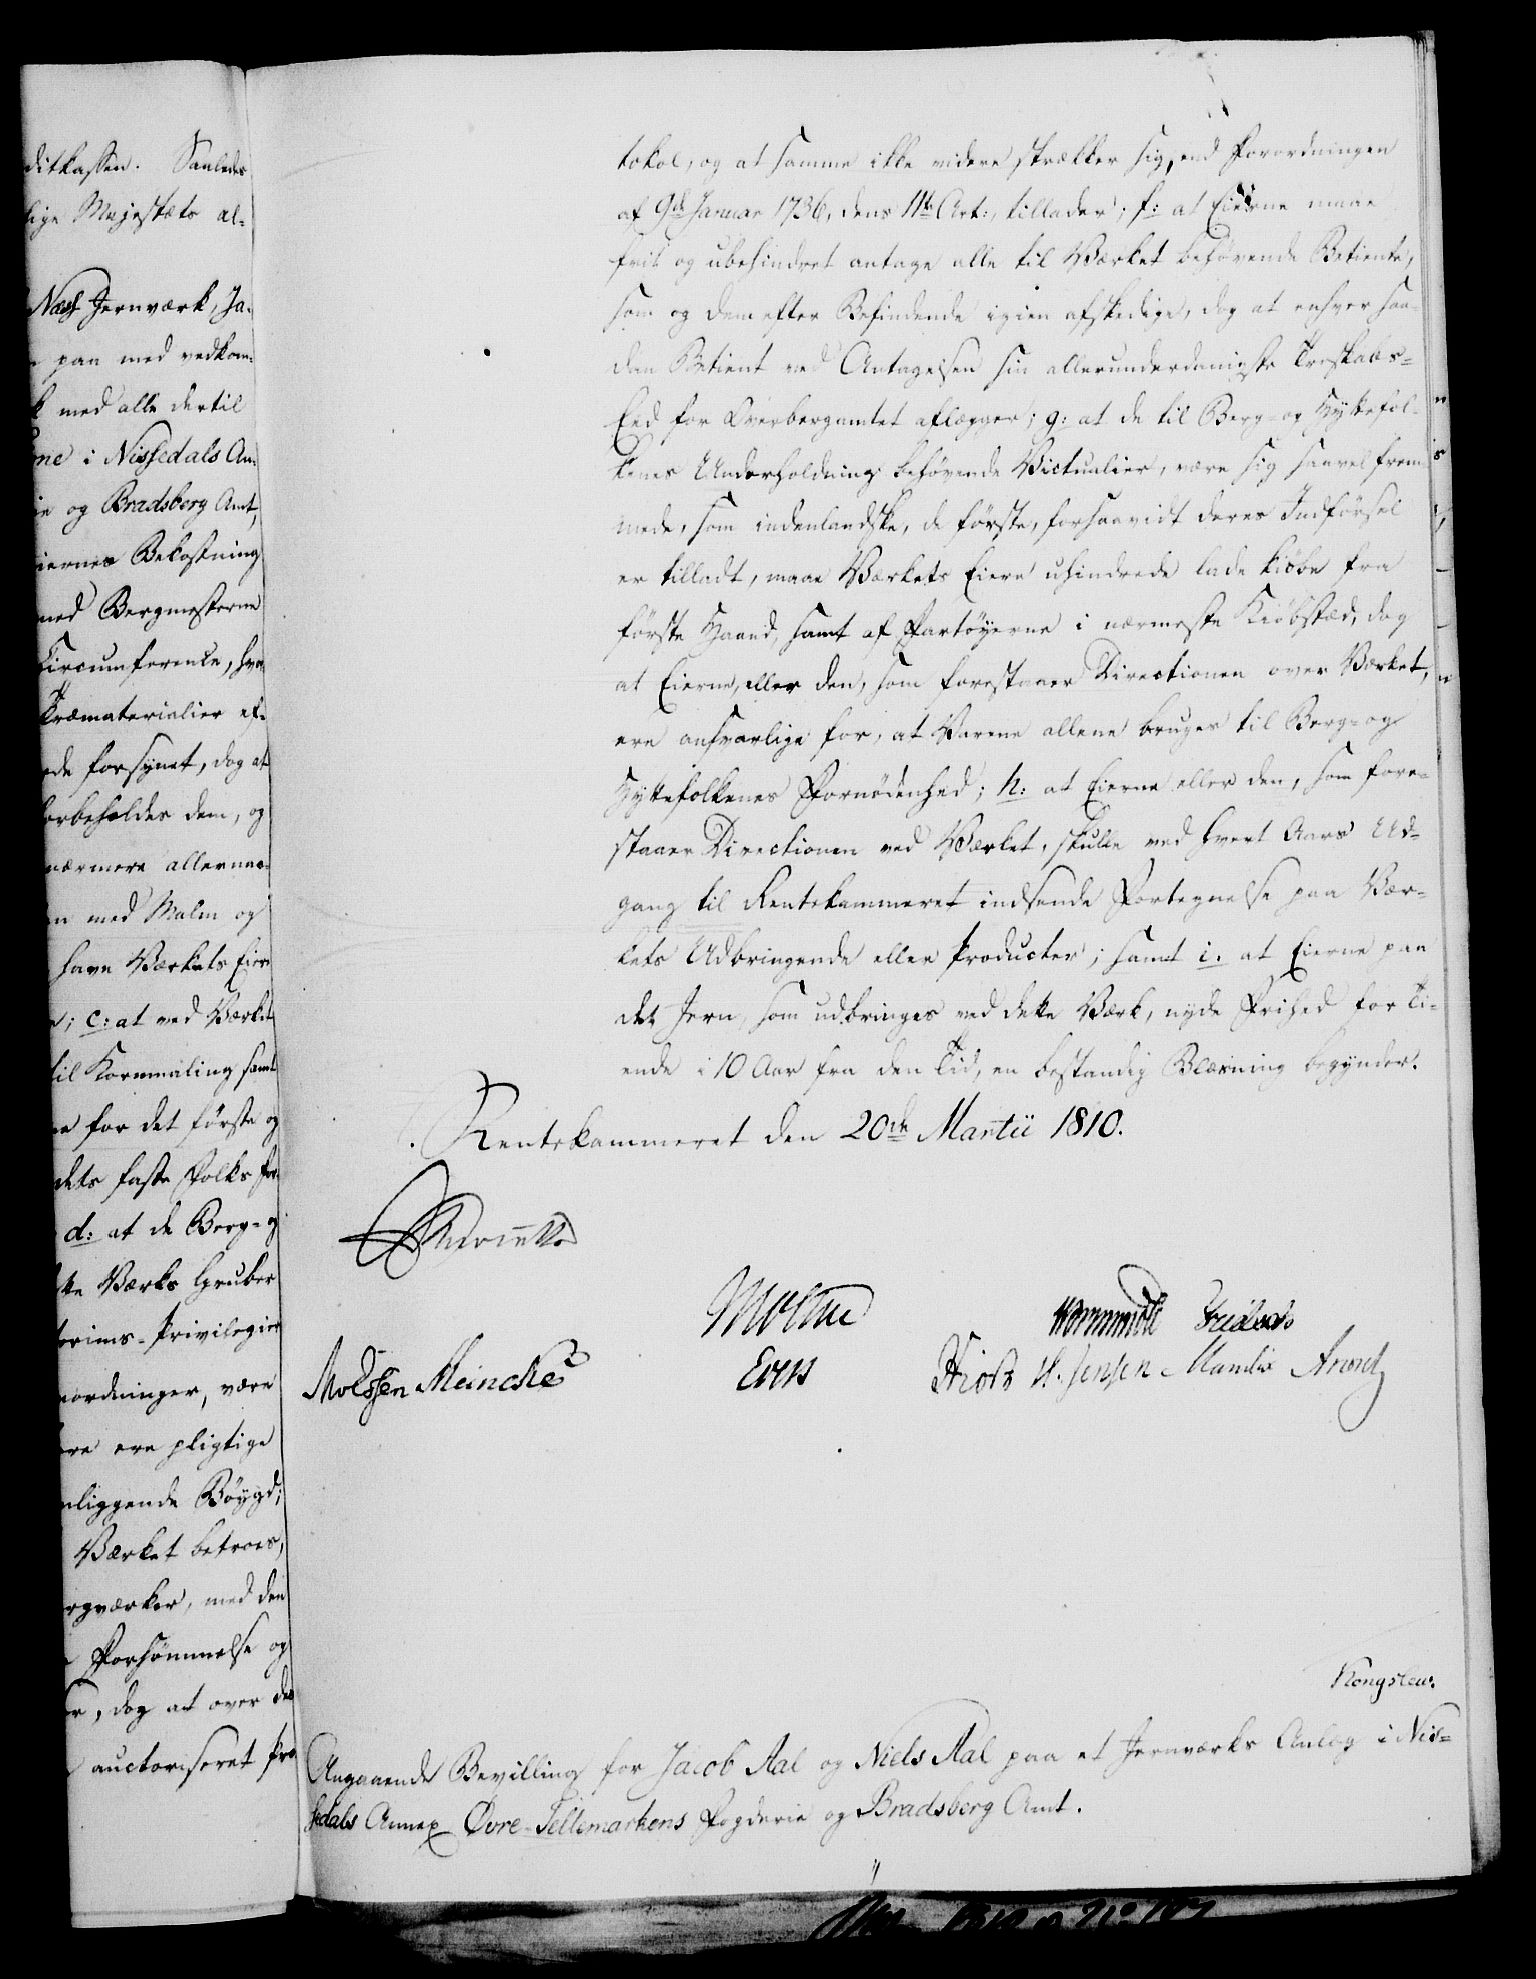 ditkassen. Saaledes
lige Majestæts al-
Næss Jernværk, Ja-
paa med vedkom-
med alle dertil
ne i Nissedals An-
ie og Bradsberg Amt,
iernes Bekostning
med Bergmesterne
Circumference, hvor
Træmaterialier ef-
ede forsynet, dog at
forbeholdes dem, og
nærmere allernaa-
n med Malm og
have Værkets Eiere
; c: at ved Værket
til Kornmaling samt
e for det første og
dets faste Folks for-
d: at de Berg- og
tte Værks Gruber
torims-Privilegier
nordninger, være
ere ere pligtige
nliggende Bøygd;
Værket betroes,
rgværker, med den
Forsømmelse og
er, dog at over de
auctoriseret Pro-
tokol, og at samme ikke videre strækker sig, end Forordningen
af 9de Januar 1736, dens 11te Art:, tillader; f: at Eierne maae
frit og ubehindret antage alle til Værket behøvende Betiente,
som og dem efter Befindende igien afskedige, dog at enhver saa-
dan Betient ved Antagelsen sin allerunderdanigste Troskabs-
Eed for Overbergamtet aflægger; g: at de til Berg- og Hyttefol-
kenes Underholdning behøvende Victualier, være sig saavel frem-
mede, som indenlandske, de første, forsaavidt deres Indførsel
er tilladt, maae Værkets Eiere uhindrede lade kiøbe fra
første Haand, samt af Fartøyerne i nærmeste Kiøbstæd, dog
at Eierne, eller den, som forestaaer Directionen over Værket,
ere ansvarlige for, at Varene allene bruges til Berg- og
Hyttefolkenes Fornødenhed; h: at Eierne eller den, som fore-
staaer Directionen ved Værket, skulle ved hvert Aars Ud-
gang til Rentekammeret indsende Fortegnelse paa Vær-
kets Udbringende eller Producter; samt i. at Eierne paa
det Jern, som udbringes ved dette Værk, nyde Frihed for Ti-
ende i 10 Aar fra den Tid, en bestandig Blæsning begynder.
Rentekammeret den 20de Martii 1810.
Moltke
Wormskiold
Molssen Meincke Evers Hiort H. Jensen Manthe Arentz
Kongsleu.
Angaaende Bevilling for Jacob Aal og Niels Aal paa et Jernværks Anlæg i Nis-
sedals Annex Øvre-Tellemarkens Fogderie og Bradsberg Amt.